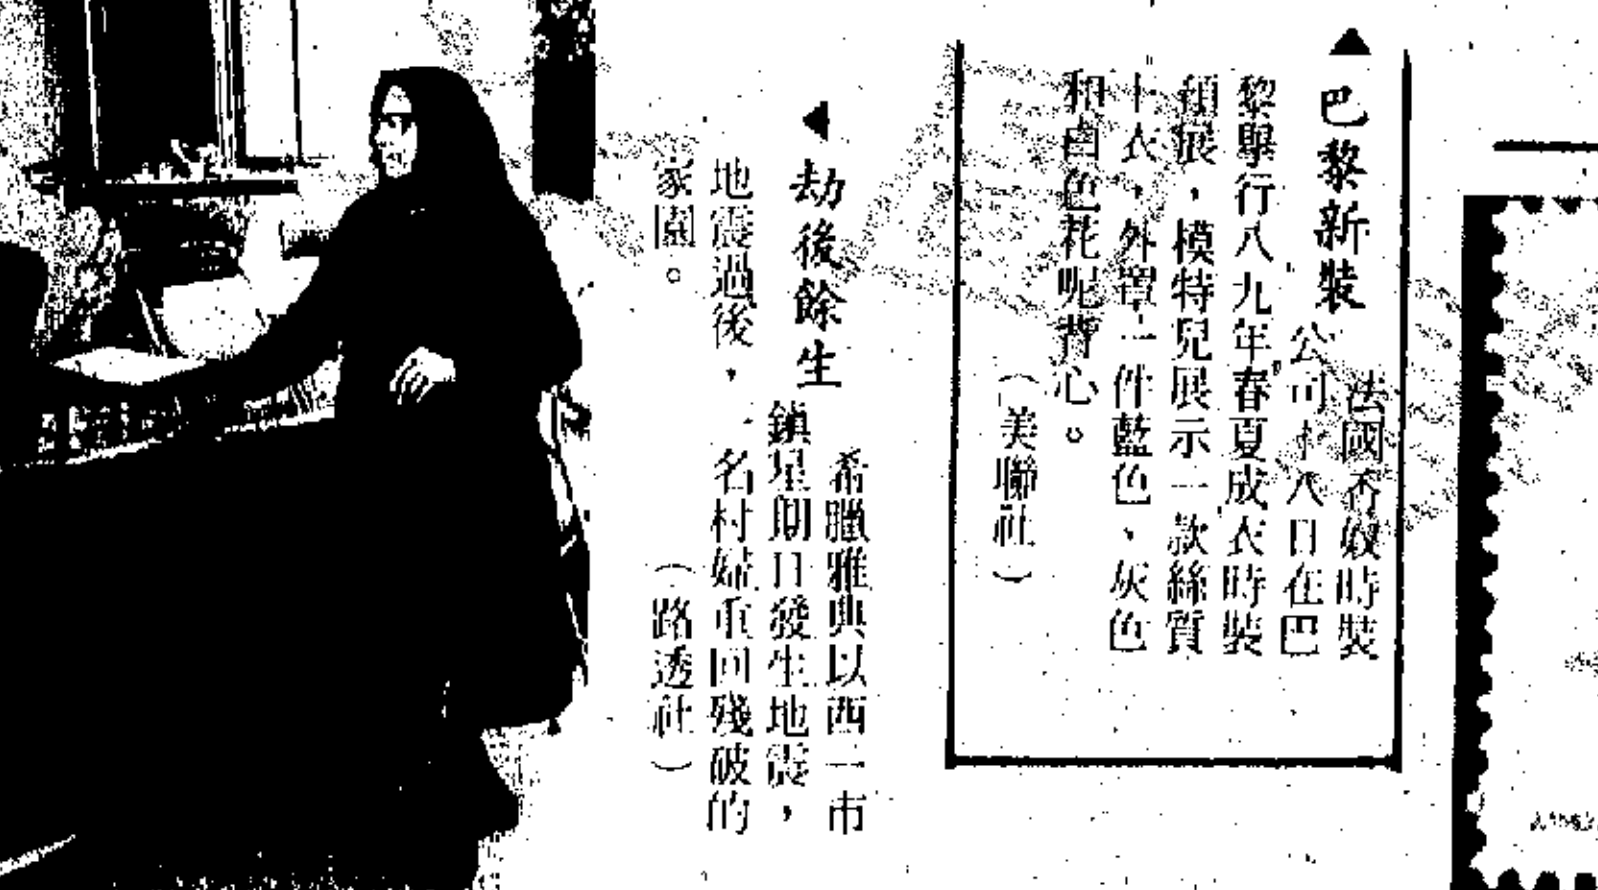 ▲巴黎新裝
法國香奴時裝
公司十八日在巴
黎舉行八九年春夏成衣時裝
預展，模特兒展示一款絲質
上衣，外罩一件藍色、灰色
和白色花呢背心。
（美聯社）
◀劫後餘生
希臘雅典以西一市
鎮星期日發生地震，
地震過後，一名村婦重回殘破的
家園。
（路透社）